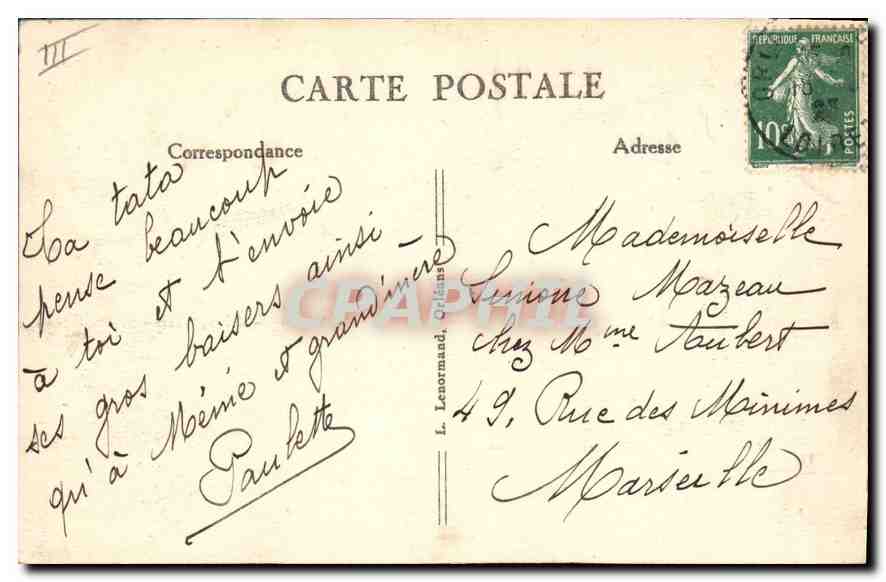 III
CARTE POSTALE
Correspondance
Adresse
REPUBLIQUE FRANÇAISE
10c
POSTES
Ta tata
pense beaucoup
à toi et t'envoie
ses gros baisers ainsi
qu'à Mémé et grand'mère
Paulette
L. Lenormand, Orléans
Mademoiselle
Simone Mazeau
chez Mme Aubert
49, Rue des Minimes
Marseille
CPAPHIL